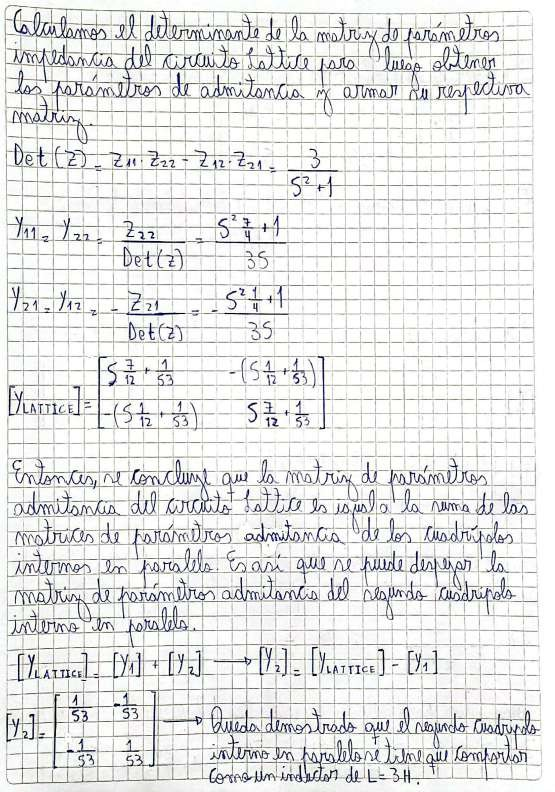 Calculamos el determinante de la matriz de parámetros
impedancia del circuito Lattice para luego obtener
los parámetros de admitancia y armar su respectiva
matriz.
Det(Z) = Z11 · Z22 - Z12 · Z21 = 3 / (S² + 1)
Y11 = Y22 = Z22 / Det(Z) = (S² 7/4 + 1) / 3S
Y21 = Y12 = - Z21 / Det(Z) = - (S² 1/4 + 1) / 3S
[YLATTICE] = [ S 7/12 + 1/S3   -(S 1/12 + 1/S3)
-(S 1/12 + 1/S3)   S 7/12 + 1/S3 ]
Entonces, se concluye que la matriz de parámetros
admitancia del circuito Lattice es igual a la suma de las
matrices de parámetros admitancia de los cuadripolos
internos en paralelo. Es así que se puede despejar la
matriz de parámetros admitancia del segundo cuadripolo
interno en paralelo.
[YLATTICE] = [Y1] + [Y2] → [Y2] = [YLATTICE] - [Y1]
[Y2] = [ 1/S3   -1/S3
-1/S3   1/S3 ] → Queda demostrado que el segundo cuadripolo
interno en paralelo se tiene que comportar
como un inductor de L = 3H.